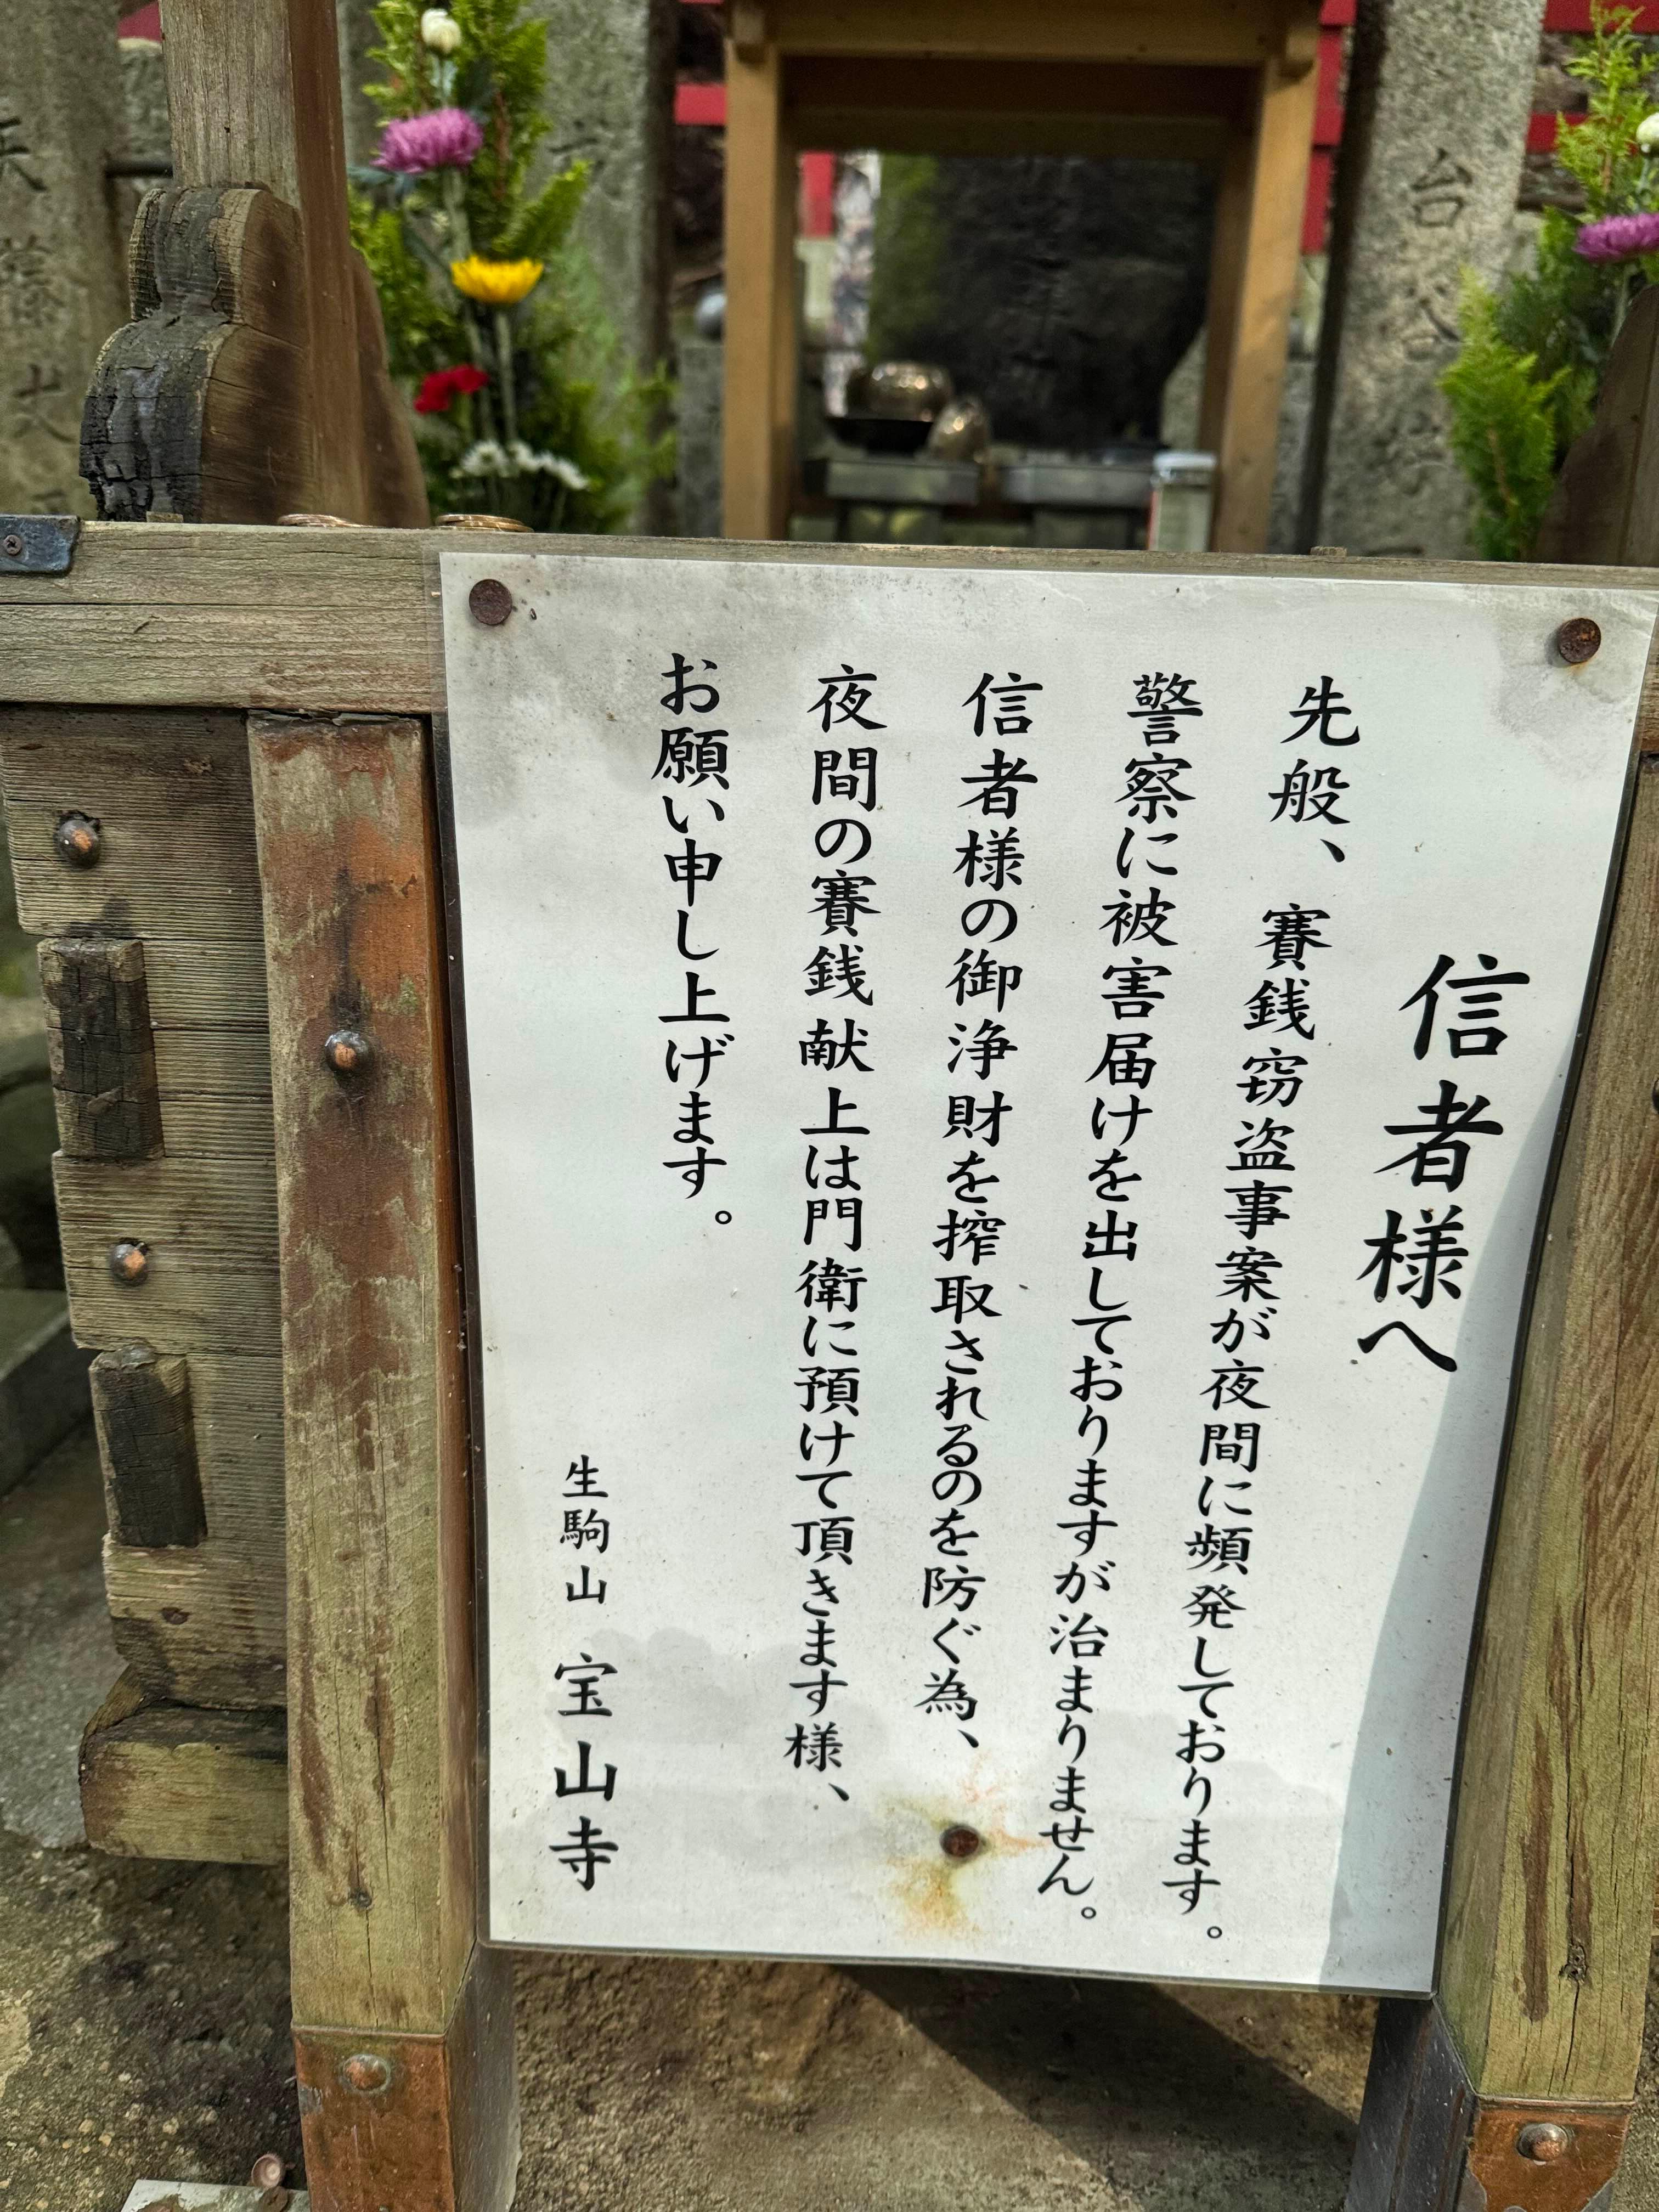 信者様へ
先般、賽銭窃盗事案が夜間に頻発しております。
警察に被害届けを出しておりますが治まりません。
信者様の御浄財を搾取されるのを防ぐ為、
夜間の賽銭献上は門衛に預けて頂きます様、
お願い申し上げます。
生駒山 宝山寺